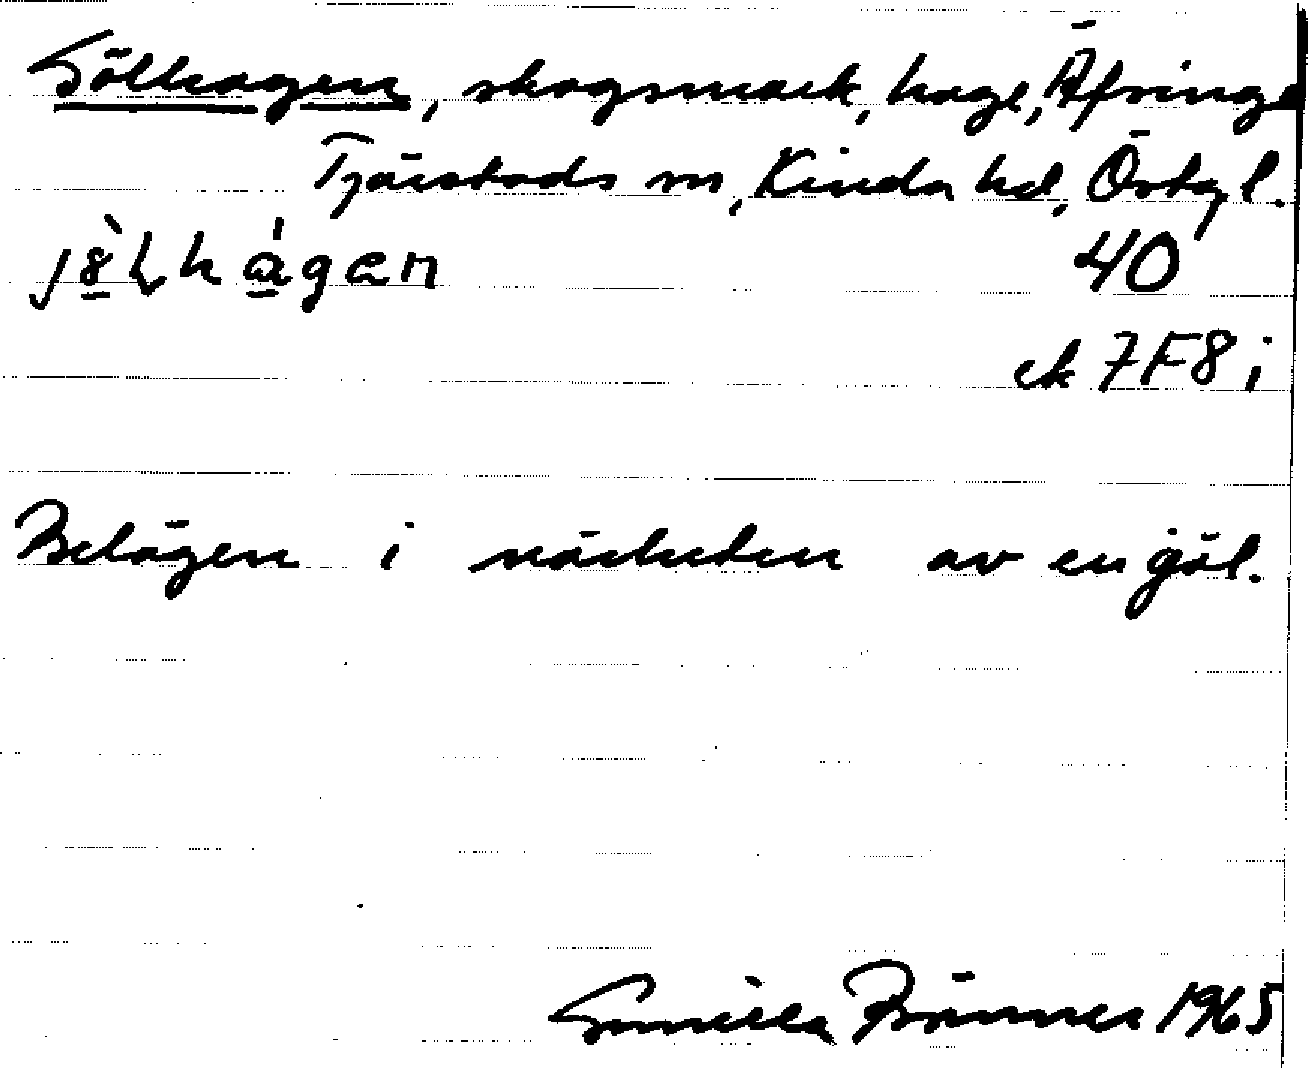 Gölhagen, skogsmark, hage, Äfvinge
Tjärstads sn, Kinda hd, Östgl.
jö̀lhágen 40
ek 7F8i
Belägen i närheten av en göl.
Gunilla Brännes 1965